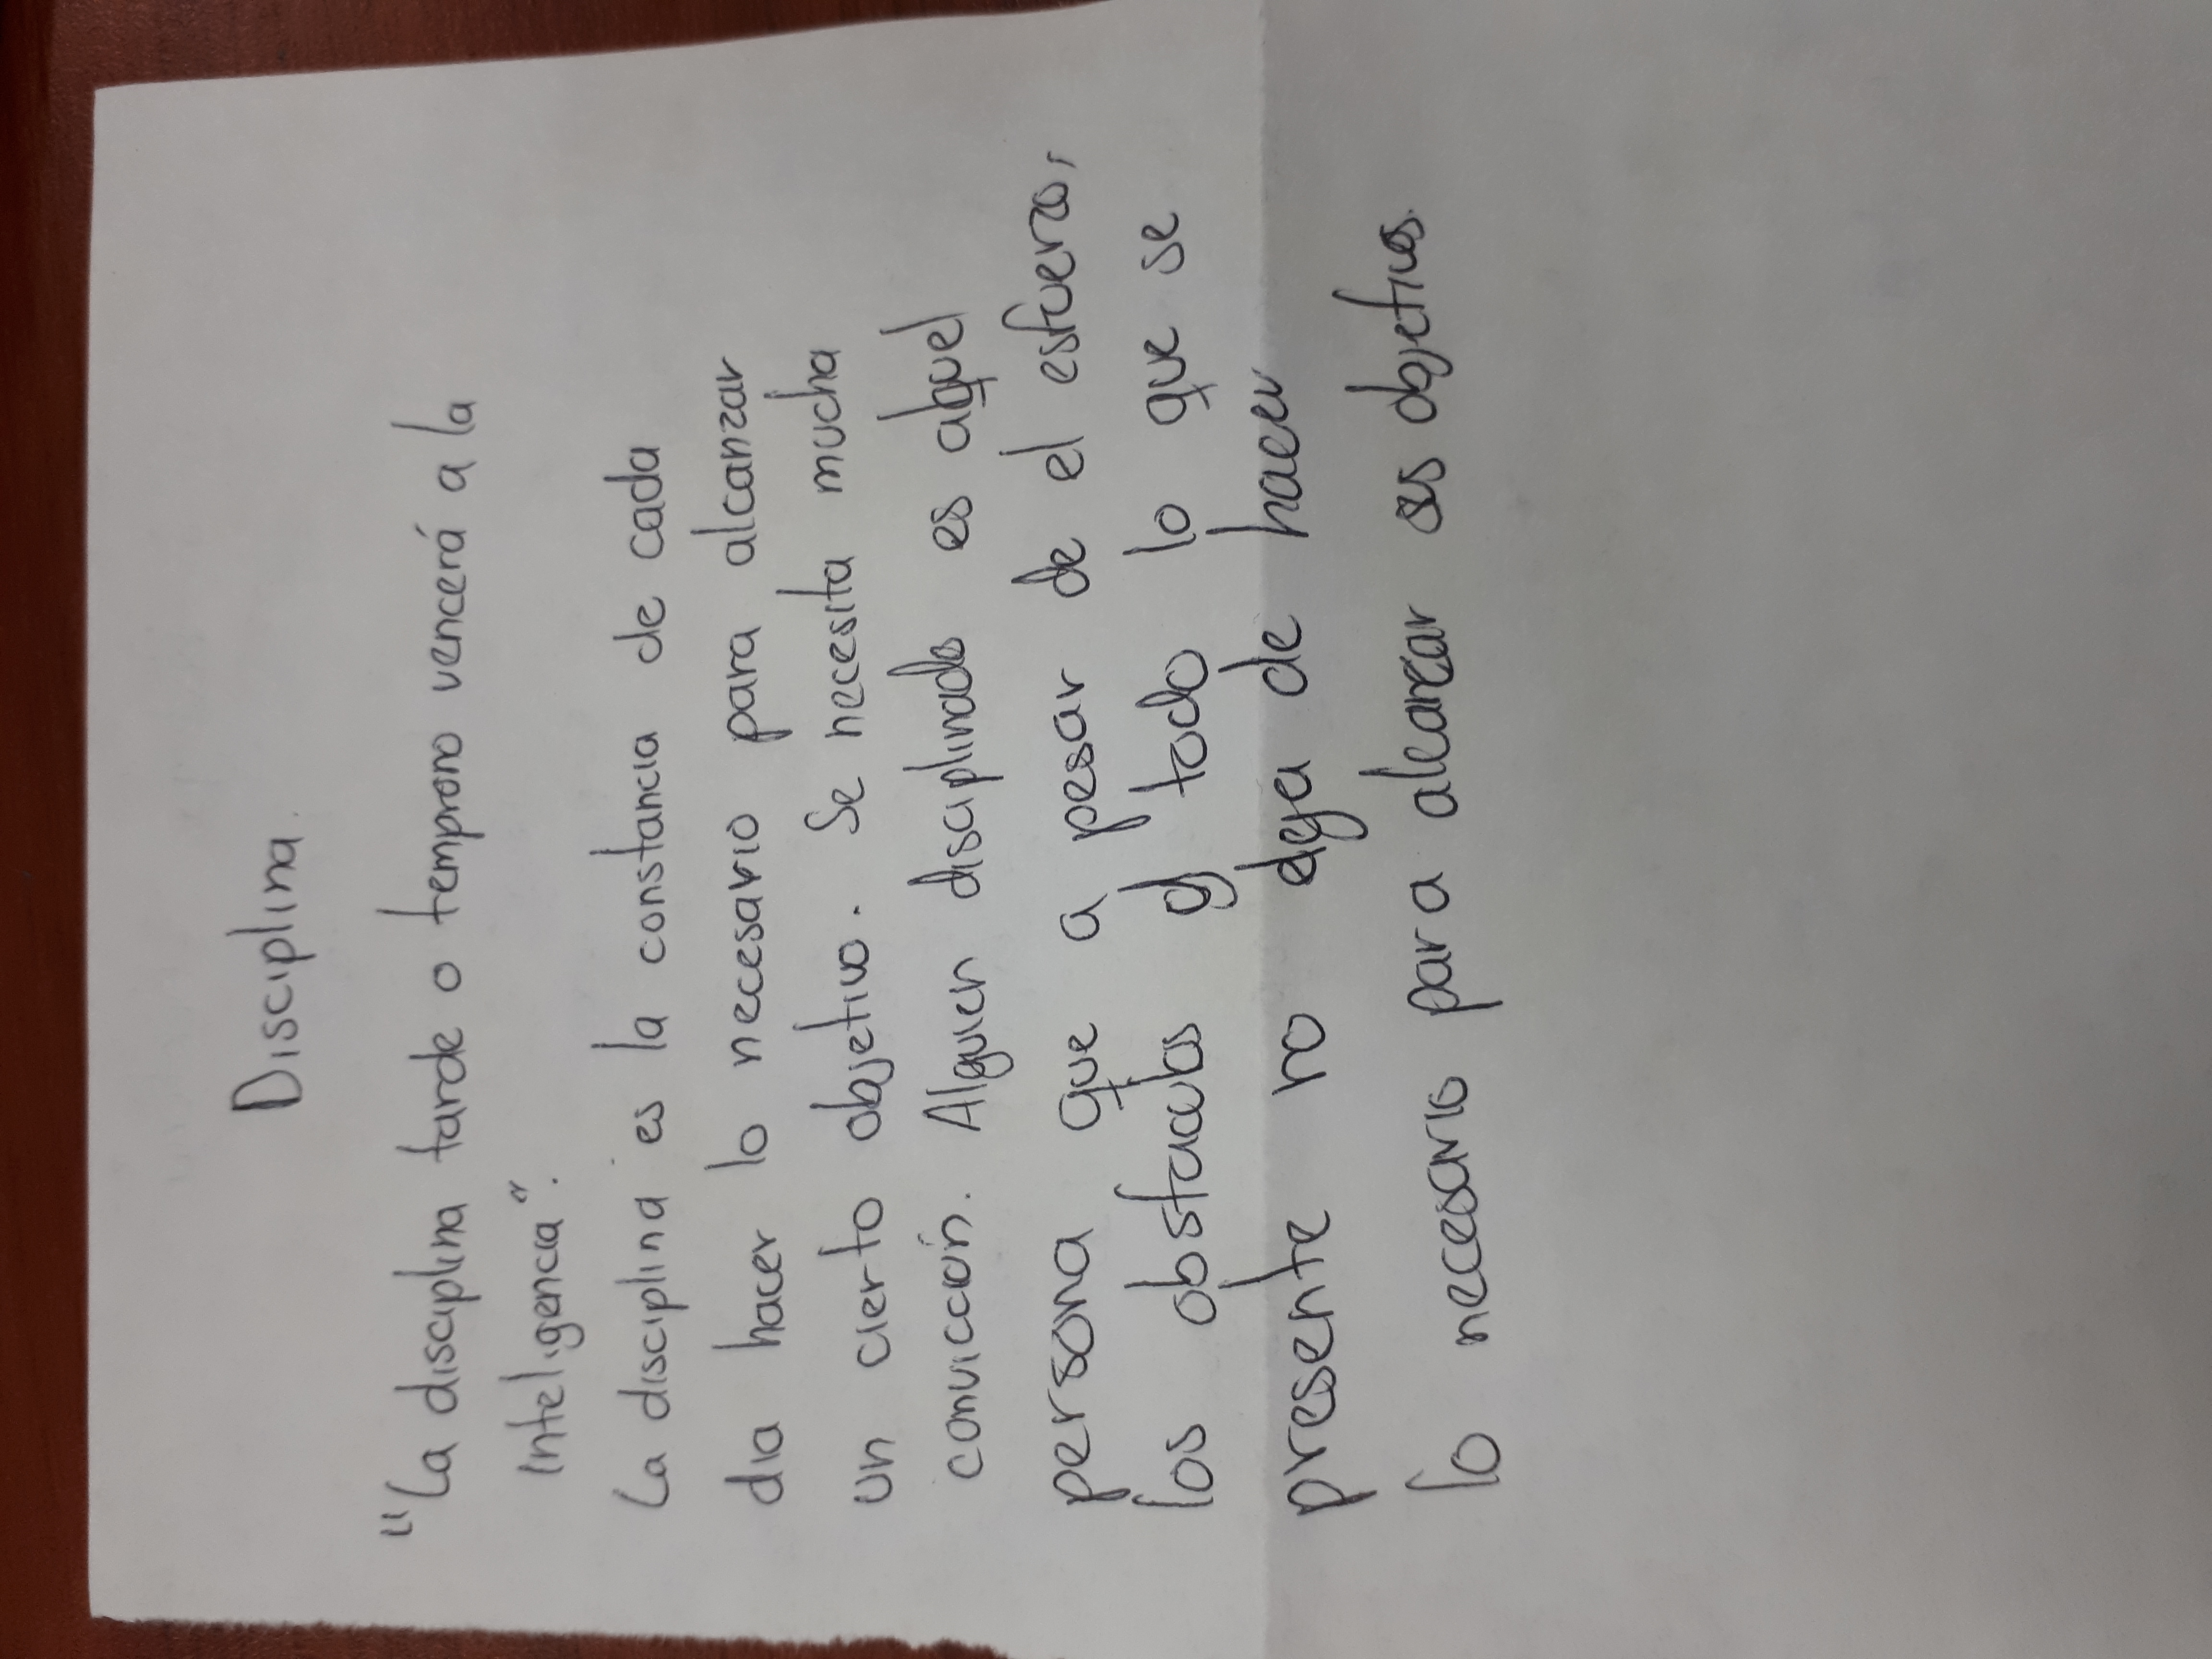 Disciplina.
"La disciplina tarde o temprano vencerá a la
inteligencia".
La disciplina es la constancia de cada
dia hacer lo necesario para alcanzar
un cierto objetivo. Se necesita mucha
convicción. Alguien disciplinado es aquel
persona que a pesar de el esfuerzo,
los obstaculos y todo lo que se
presente no deja de hacer
lo necesario para alcanzar sus objetivos.